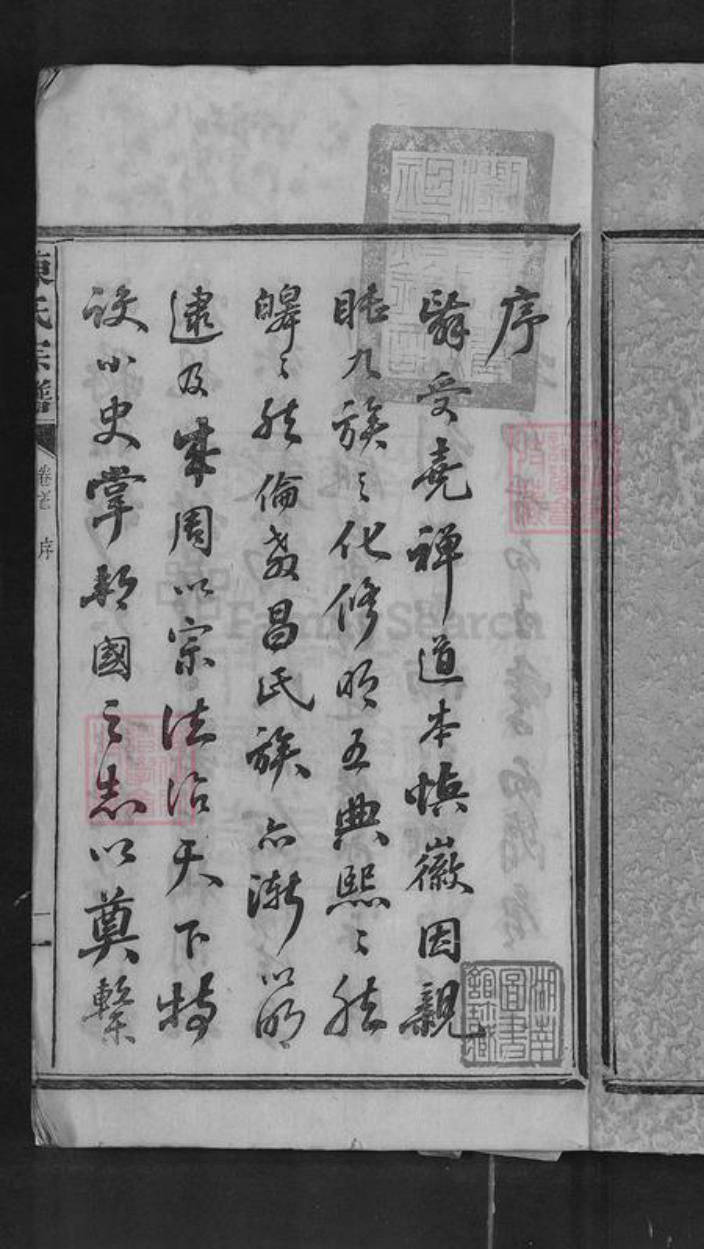 序
受堯禪道本慎徽因親
睦九族之化修明五典熙〻然
皞〻然倫敘昌氏族亦漸以明
逮及成周以宗法治天下特
設小史掌邦國之志以奠繫
陳氏宗譜
卷首 序
湖南
圖書
館珍藏
FamilySearch